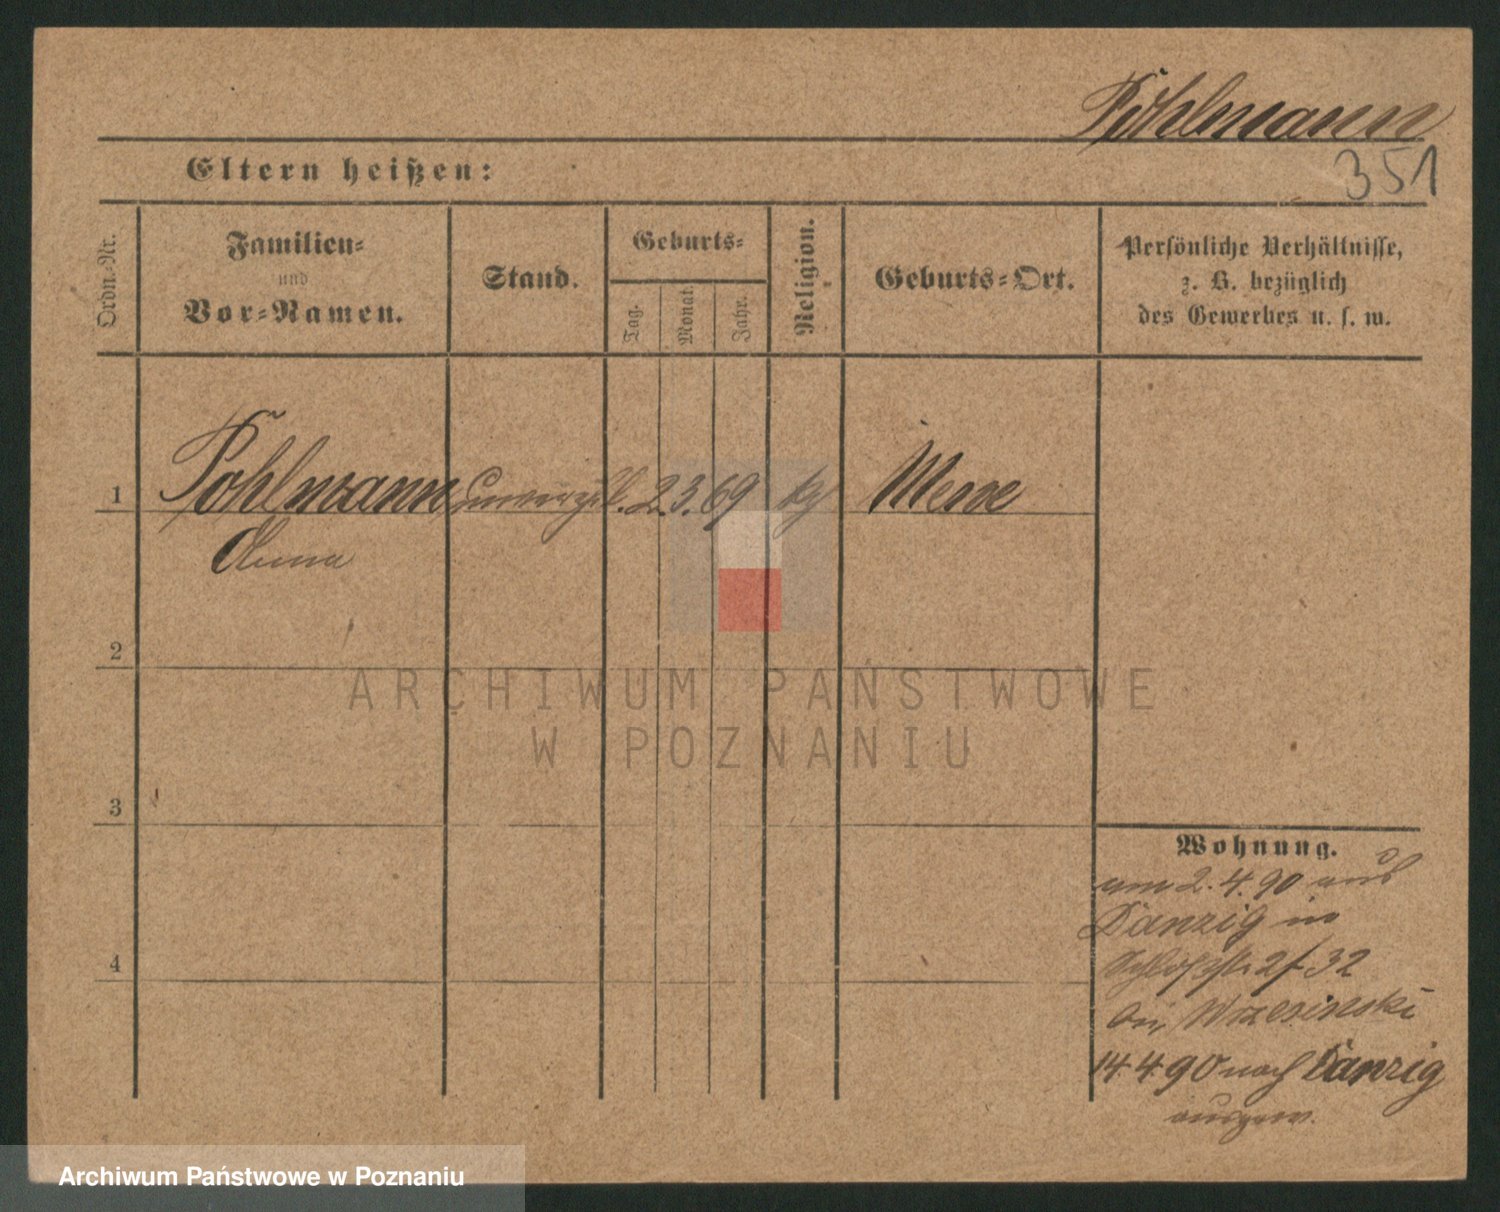 Pohlmann
351
Eltern heißen:
Ordn.-Nr.
Familien-
und
Vor-Namen.
Stand.
Geburts-
Tag.
Monat.
Jahr.
Religion.
Geburts-Ort.
Persönliche Verhältnisse,
z. B. bezüglich
des Gewerbes u. s. w.
1
Pohlmann 2. 3. 69 kg Mewe
Anna
2
ARCHIWUM PAŃSTWOWE
W POZNANIU
3
Wohnung.
am 2.4.90 aus
Danzig in
Schloßstr. 2/32
bei Wrzesinski
4
14 4 90 nach Danzig
Archiwum Państwowe w Poznaniu